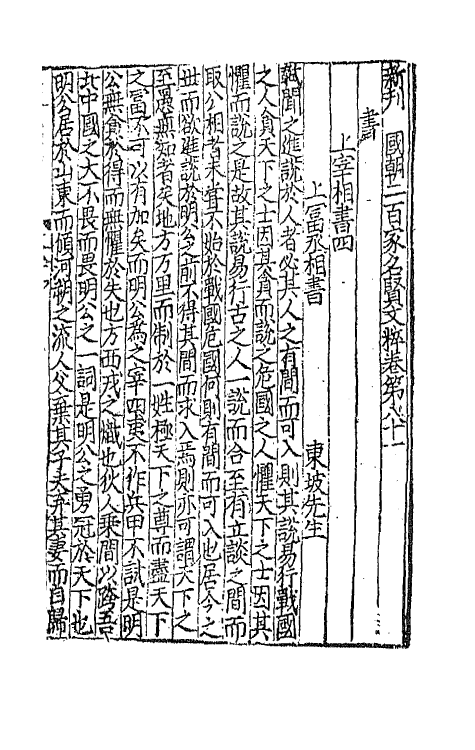 新刊 國朝二百家名賢文粹卷第八十一
書
上宰相書四
上富丞相書 東坡先生
軾聞之進說於人者必其人之有間而可入則其說易行戰國
之人貪天下之士因其貪而說之危國之人懼天下之士因其
懼而說之是故其說易行古之人一說而合至有立談之間而
取公相者未甞不始於戰國危國何則有間而可入也居今之
世而欲進說於明公之前不得其間而求入焉則亦可謂天下之
至愚無知者矣地方万里而制於一姓極天下之尊而盡天下
之富不可以有加矣而明公爲之宰四夷不作兵甲不試是明
公無貪於得而無懼於失也方西戎之熾也狄人乘間以跨吾
北中國之大不畏而畏明公之一詞是明公之勇冠於天下也
明公居於山東而傾河朔之流人父棄其子夫弃其妻而自歸